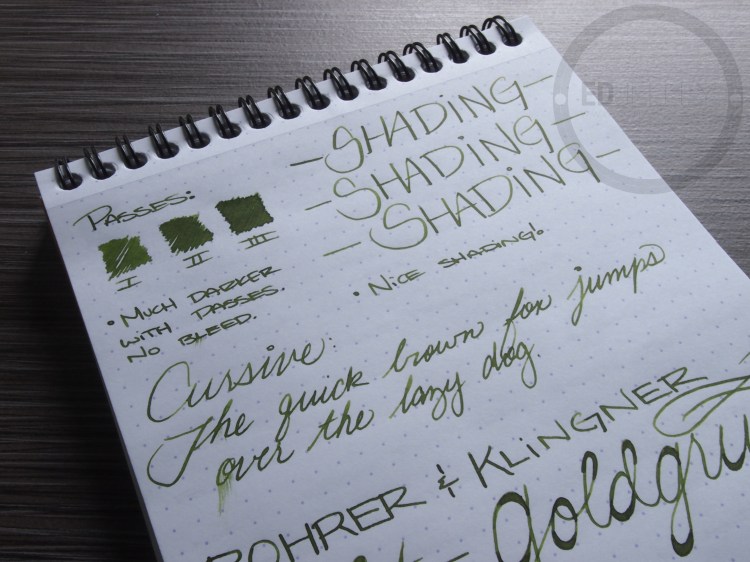 Passes:
I II III
• Much darker
with passes.
No bleed.
— Shading —
— Shading —
— Shading —
• Nice shading!
Cursive:
The quick brown fox jumps
over the lazy dog.
Rohrer & Klingner
ED